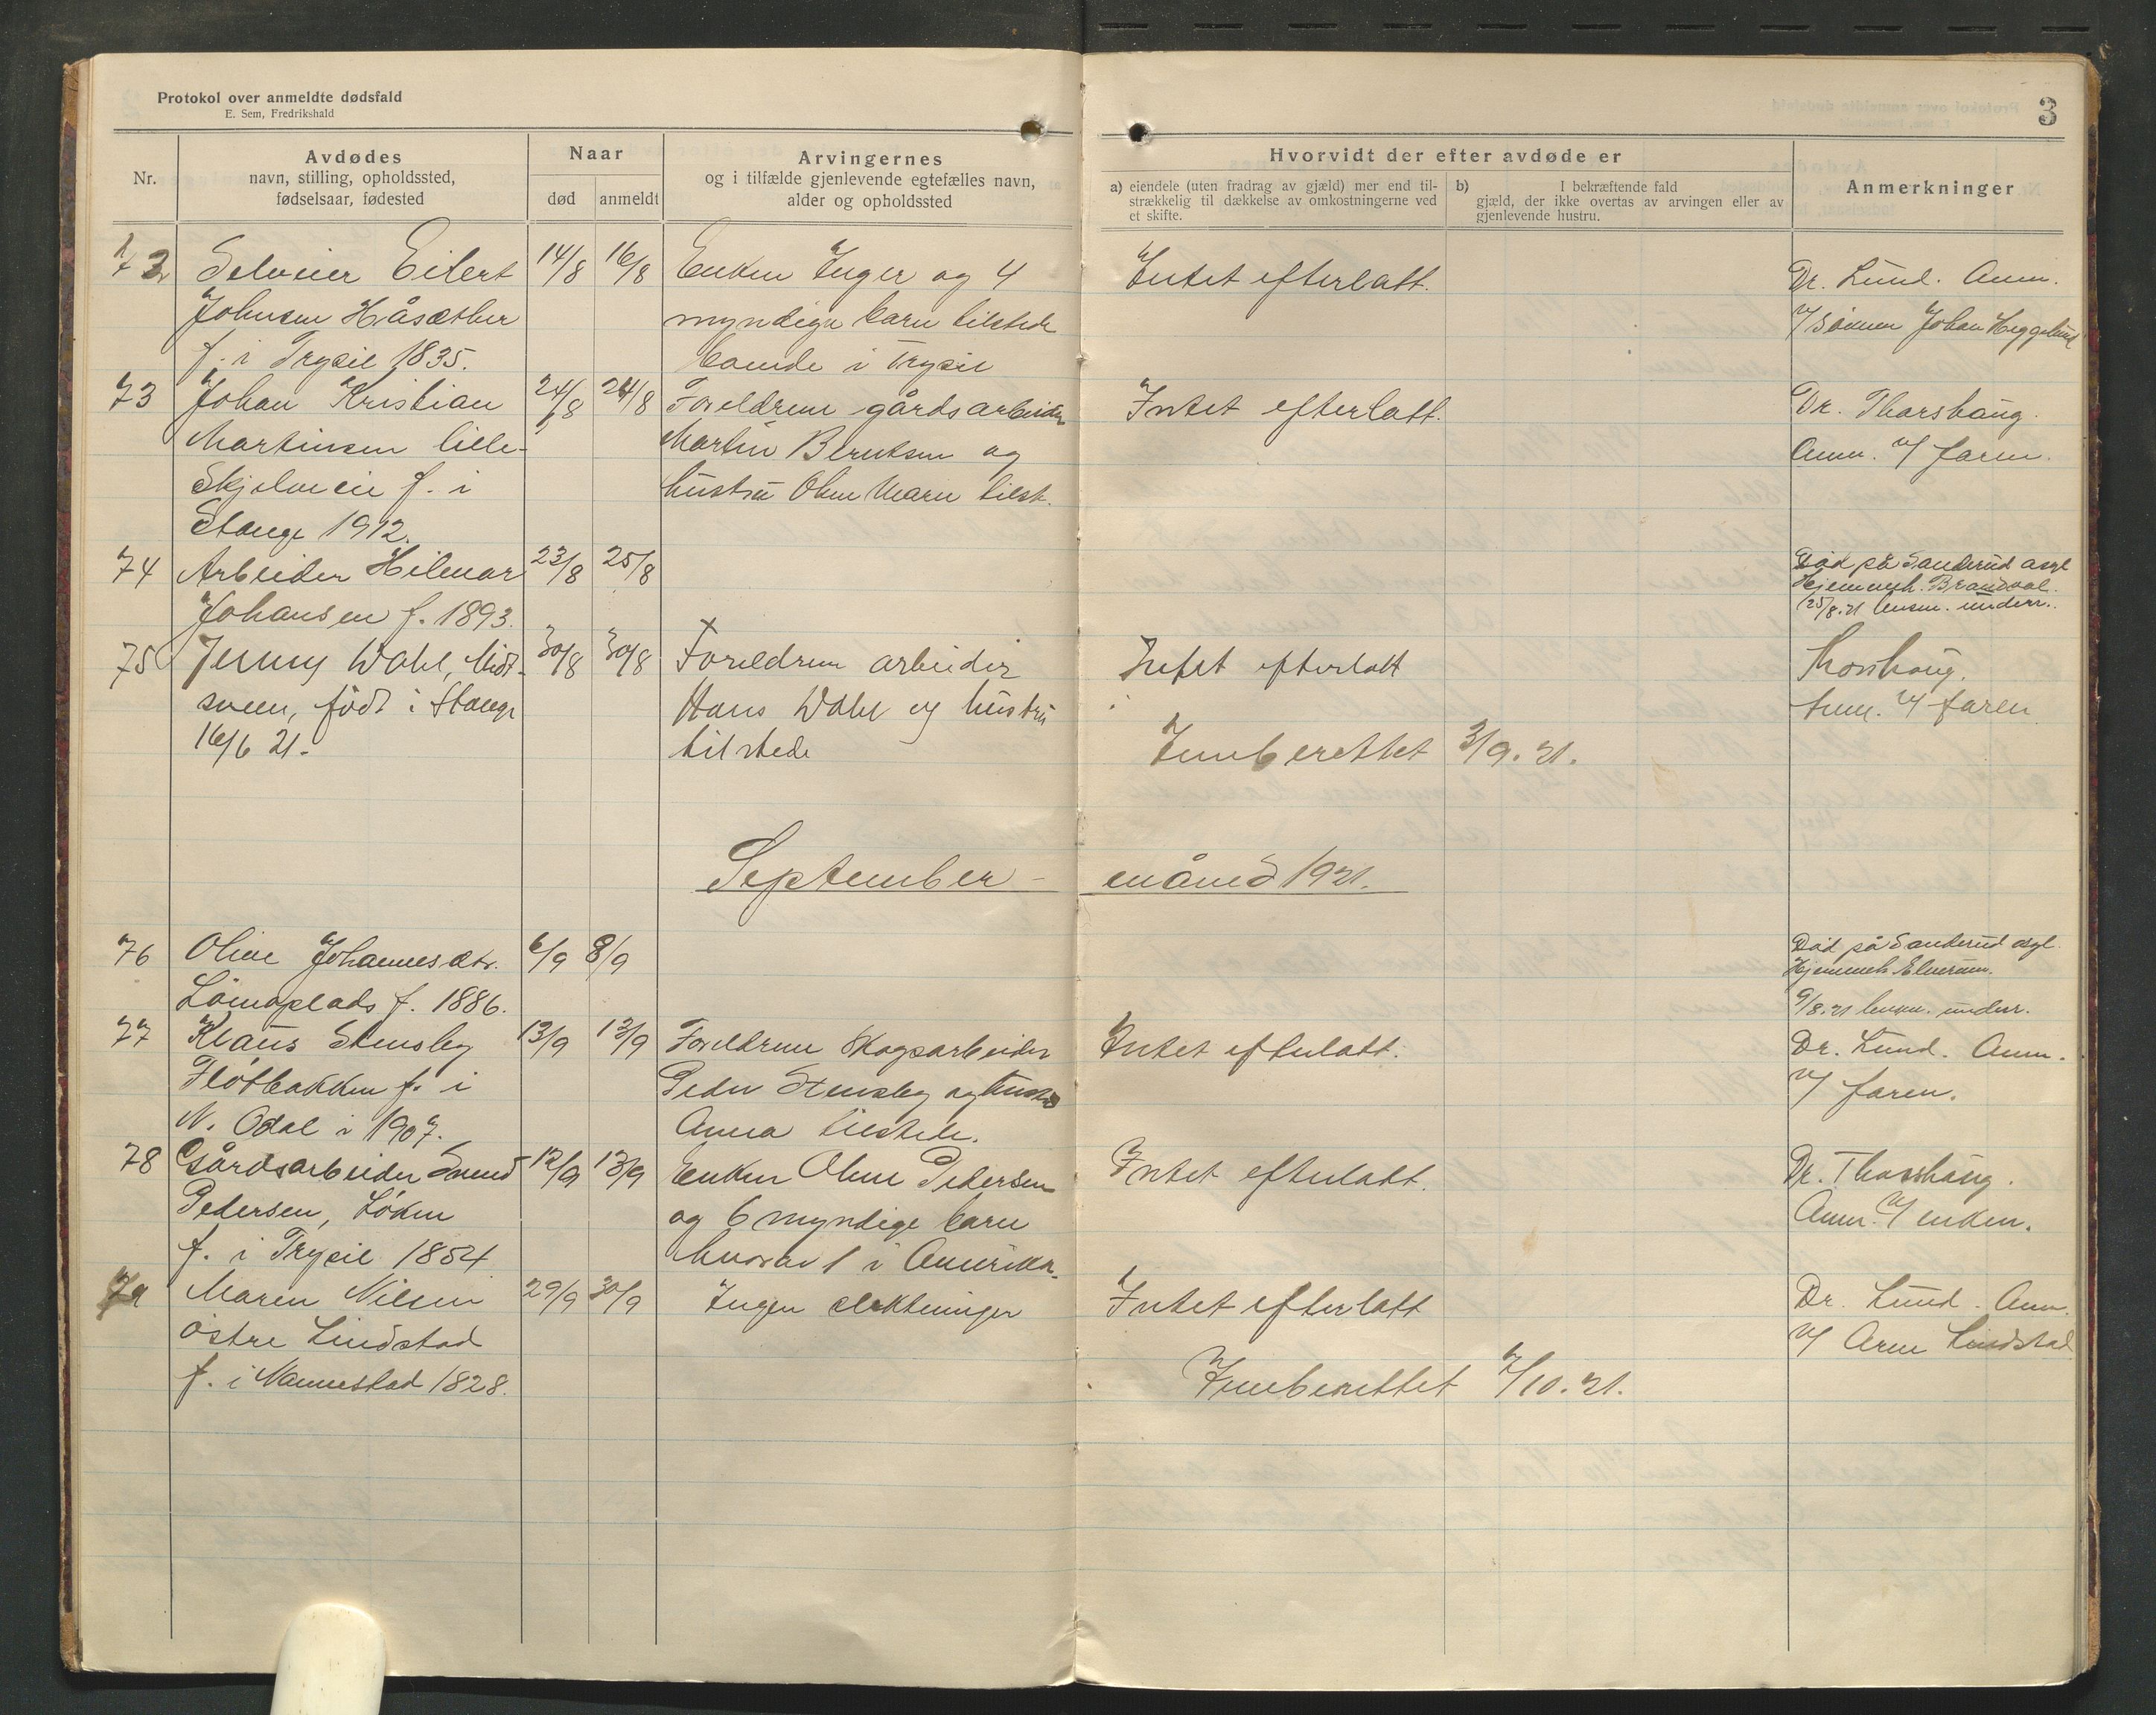 Protokol over anmeldte dødsfald
E. Sem, Fredrikshald
3
Nr.
Avdødes
navn, stilling, opholdssted,
fødselsaar, fødested
Naar
død
anmeldt
Arvingernes
og i tilfælde gjenlevende egtefælles navn,
alder og opholdssted
Hvorvidt der efter avdøde er
a) eiendele (uten fradrag av gjæld) mer end til-
strækkelig til dækkelse av omkostningerne ved
et skifte.
b) I bekræftende fald
gjæld, der ikke overtas av arvingen eller av
gjenlevende hustru.
Anmerkninger
72 Selveier Eilert 14/8 16/8 Enken Inger og 4 Intet efterlatt. Dr. Lund. Anm.
Johnsen Håsæther myndige barn tilstede v/ sönnen Johan Heggelund
f. i Trysil 1835. boende i Trysil
73 Johan Kristian 24/8 24/8 Foreldrene gårdsarbeider Intet efterlatt. Dr. Thorshaug.
Martinsen lille- Martin Berntsen og Anm. v/ faren.
Skjelvein f. i hustru Oline Maren tilst.
Stange 1912.
74 Arbeider Hilmar 23/8 25/8 Död på Sanderud asyl
Johansen f. 1893. Hjemmeh. Brandval.
25/8.21 lensm. underr.
75 Jenny Wahl, Midt- 30/8 30/8 Foreldrene arbeider Intet efterlatt Thorshaug.
sveen, född i Stange Hans Wahl og hustru Anm. v/ faren
16/6 21. tilstede Innberettet 3/9.21.
September- månd 1921.
76 Oline Johannesdtr. 6/9 8/9 Död på Sanderud asyl.
f. 1886. Hjemmeh. Elverum.
9/8.21 lensm. underr.
77 Klaus Stensby 13/9 13/9 Foreldrene skogsarbeider Intet efterlatt. Dr. Lund. Anm.
Flötbakken f. i Peder Stensby og hustru v/ faren.
N. Odal i 1907. Anna tilstede.
78 Gårdsarbeider Svend 12/9 13/9 Enken Oline Pedersen Intet efterlatt. Dr. Thorshaug.
Pedersen, Löken og 6 myndige barn Anm. v/ enken.
f. i Trysil 1854 hvorav 1 i Amerika.
79 Maren Nilsen 29/9 30/9 Ingen slektninger Intet efterlatt Dr. Lund. Anm.
östre Lindstad v/ Arne Lindstad
f. i Nannestad 1828. Innberettet 7/10.21.